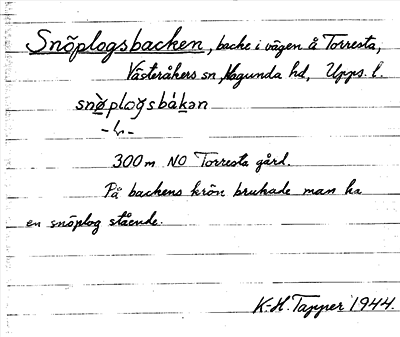 Snöplogsbacken, backe i vägen å Torresta,
Västeråkers sn, Hagunda hd, Upps. l.
snø̀ploğsbákən
300 m NO Torresta gård.
På backens krön brukade man ha
en snöplog stående.
K-H. Tapper 1944.